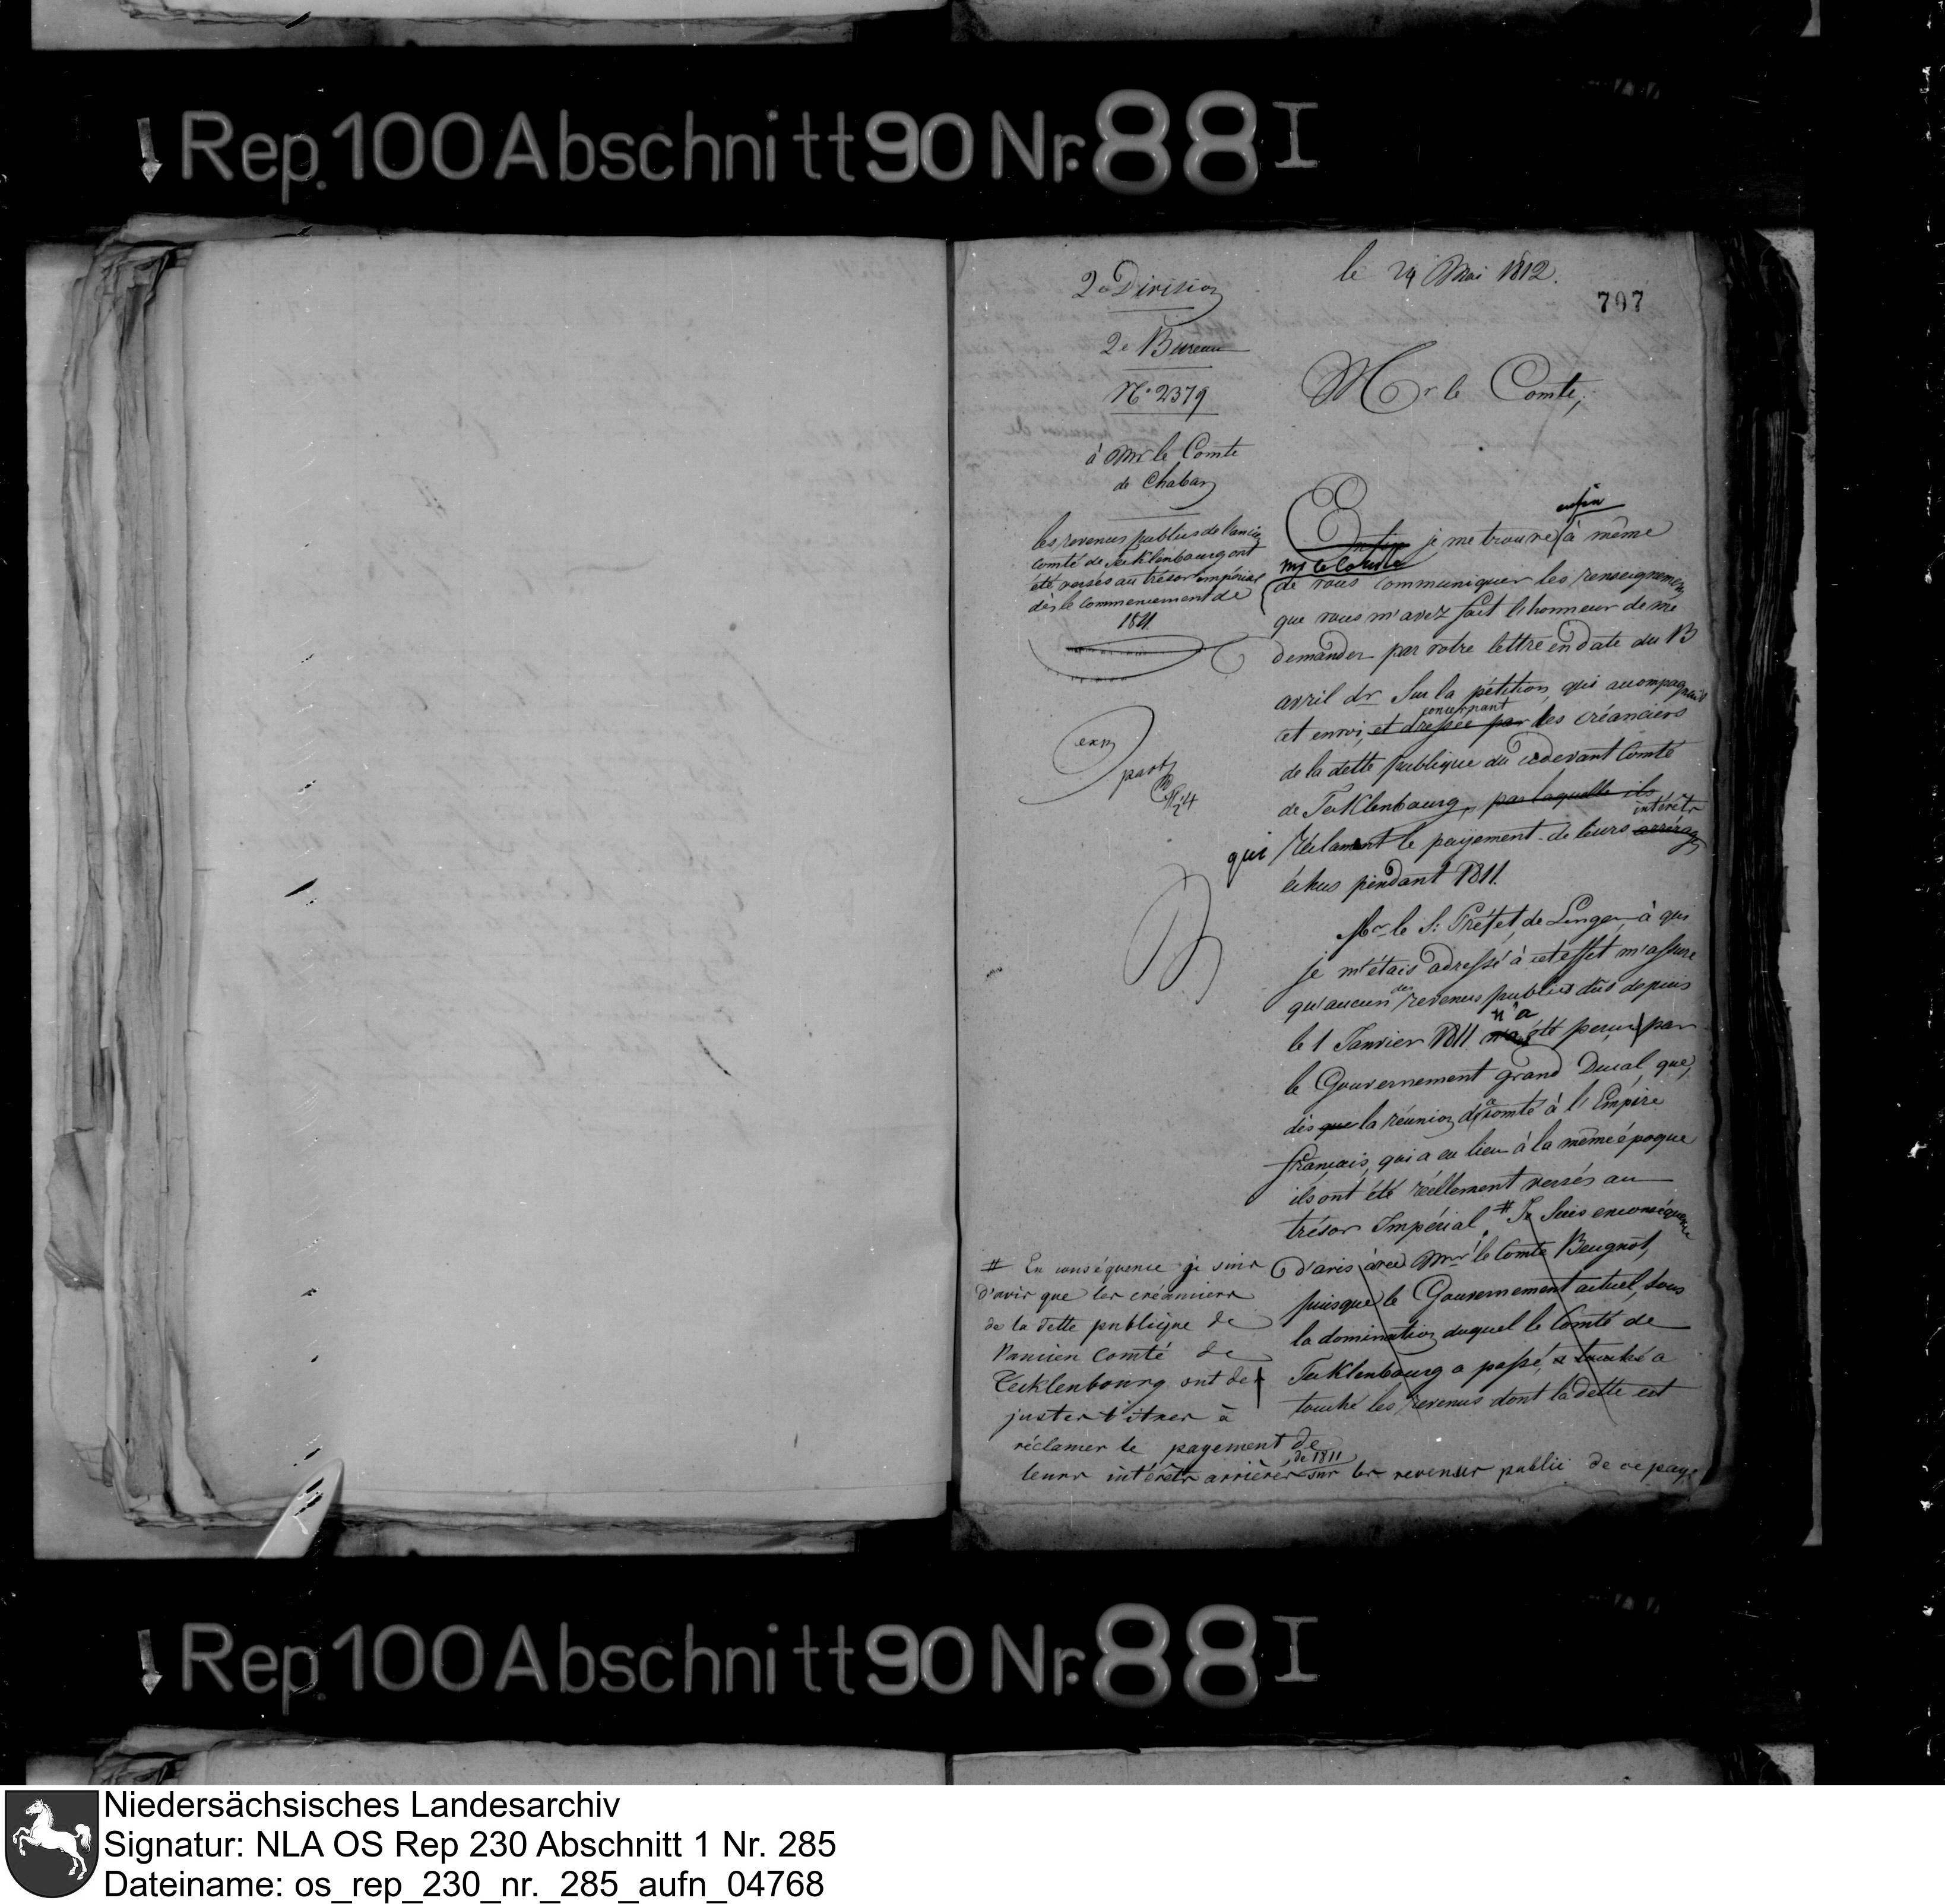 Rep. 100 Abschnitt 90 Nr. 88 I
le 24 Mai 1812.
797
2e Division
2e Bureau
N° 2379
à Mr le Comte
de Chaban
les revenus publics de l'ancien
comté de Tecklenbourg ont
été versés au trésor impérial
dès le commencement de
1811.
Mr le Comte,
enfin
Enfin je me trouve à même
Mr le Comte
de vous communiquer les renseignemens
que vous m'avez fait l'honneur de me
demander par votre lettre en date du 13
avril dr Sur la pétition, qui accompagnait
concernant
cet envoi, et dressée par les créanciers
de la dette publique du cidevant Comté
de Tecklenbourg, par laquelle ils
intérêts
qui réclament le payement de leurs arrérages
échus pendant 1811.
Mr le S: Préfet de Lingen, à qui
je m'étais adressé à cet effet m'assure
des
qu'aucun revenus publics dûs depuis
n'a
le 1 Janvier 1811 été perçu par
le Gouvernement grand Ducal, que,
dès que la réunion du comté à l'Empire
français, qui a eu lieu à la même époque
ils ont été réellement versés au
trésor Impérial. # Je suis en conséquence
d'avis avec Mr le Comte Beugnot,
puisque le Gouvernement actuel, sous
la domination duquel le Comté de
Tecklenbourg a passé, a touché a
touché les revenus dont la dette est
# En conséquence je suis
d'avis que les créanciers
de la dette publique de
l'ancien Comté de
Tecklenbourg ont de
justes titres à
réclamer le payement de
de 1811
leurs intérêts arriérés sur les revenus public de ce pays
Rep. 100 Abschnitt 90 Nr. 88 I
Niedersächsisches Landesarchiv
Signatur: NLA OS Rep 230 Abschnitt 1 Nr. 285
Dateiname: os_rep_230_nr._285_aufn_04768